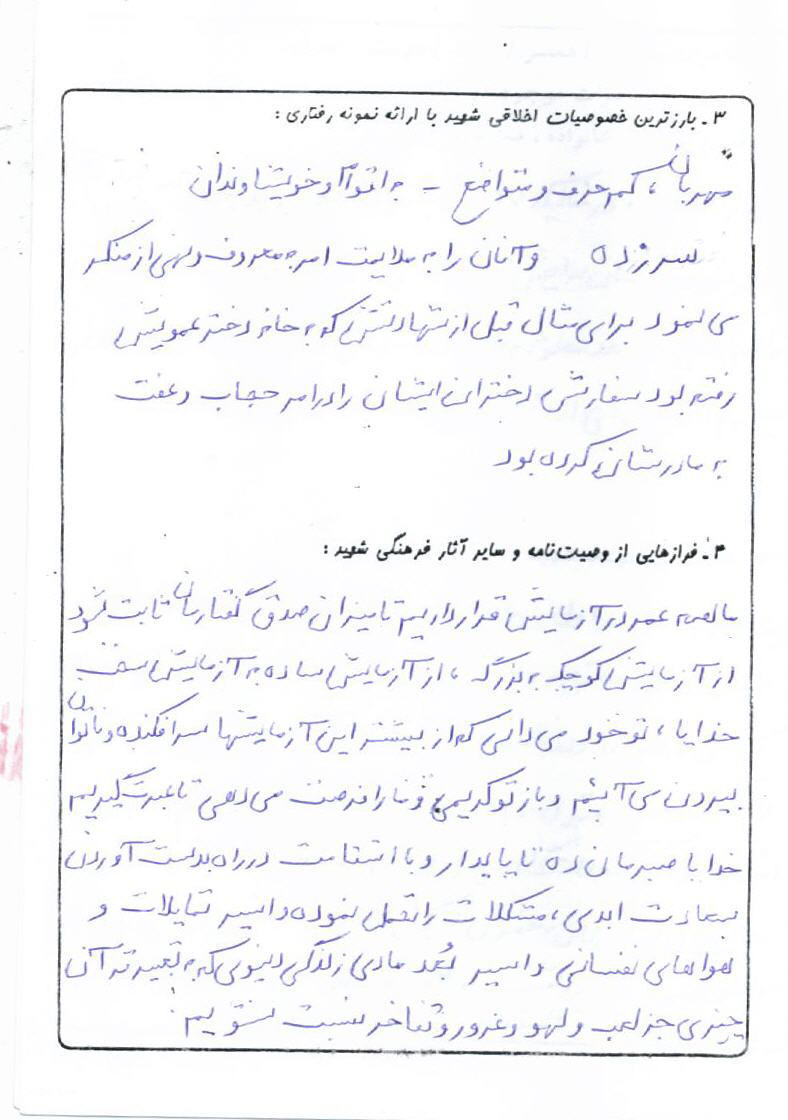 ۳ـ بارزترین خصوصیات اخلاقی شهید با ارائه نمونه رفتاری :
مهربان ، کم حرف و متواضع – به اقوام و خویشاوندان
سر زده و آنان را به ملایمت امر به معروف و نهی از منکر
می نمود برای مثال قبل از شهادتش که به خانه دختر عمویش
رفته بود سفارش دختران ایشان را در امر حجاب و عفت
به مادرشان کرده بود
۴ـ فرازهایی از وصیت‌نامه و سایر آثار فرهنگی شهید :
ما همه عمر در آزمایش قرار داریم تا میزان صدق گفتارمان ثابت شود
از آزمایش کوچک به بزرگ ، از آزمایش ساده به آزمایش سخت
خدایا ، تو خود می دانی که از بیشتر این آزمایشها سرافکنده و ناتوان
بیرون می آئیم و باز تو کریمی و ما را فرصت می دهی تا عبرت گیریم
خدایا صبرمان ده تا پایدار و با استقامت در راه بدست آوردن
سعادت ابدی ، مشکلات را تحمل نموده و اسیر تمایلات و
هواهای نفسانی و اسیر بُعد مادی زندگی دنیوی که به تعبیر قرآن
چیزی جز لعب و لهو و غرور و تفاخر نیست نشویم .